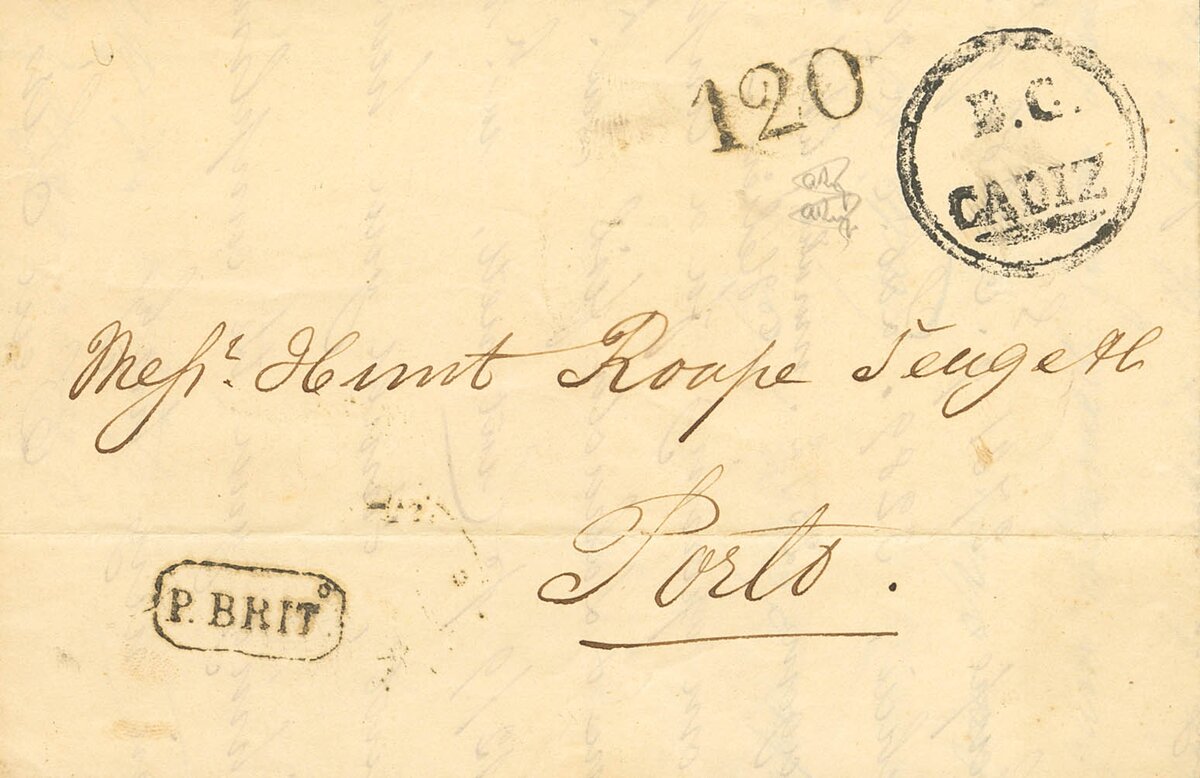 120
B.C.
CADIZ
Messrs. Hunt Roope Teage &
Porto.
P. BRITº